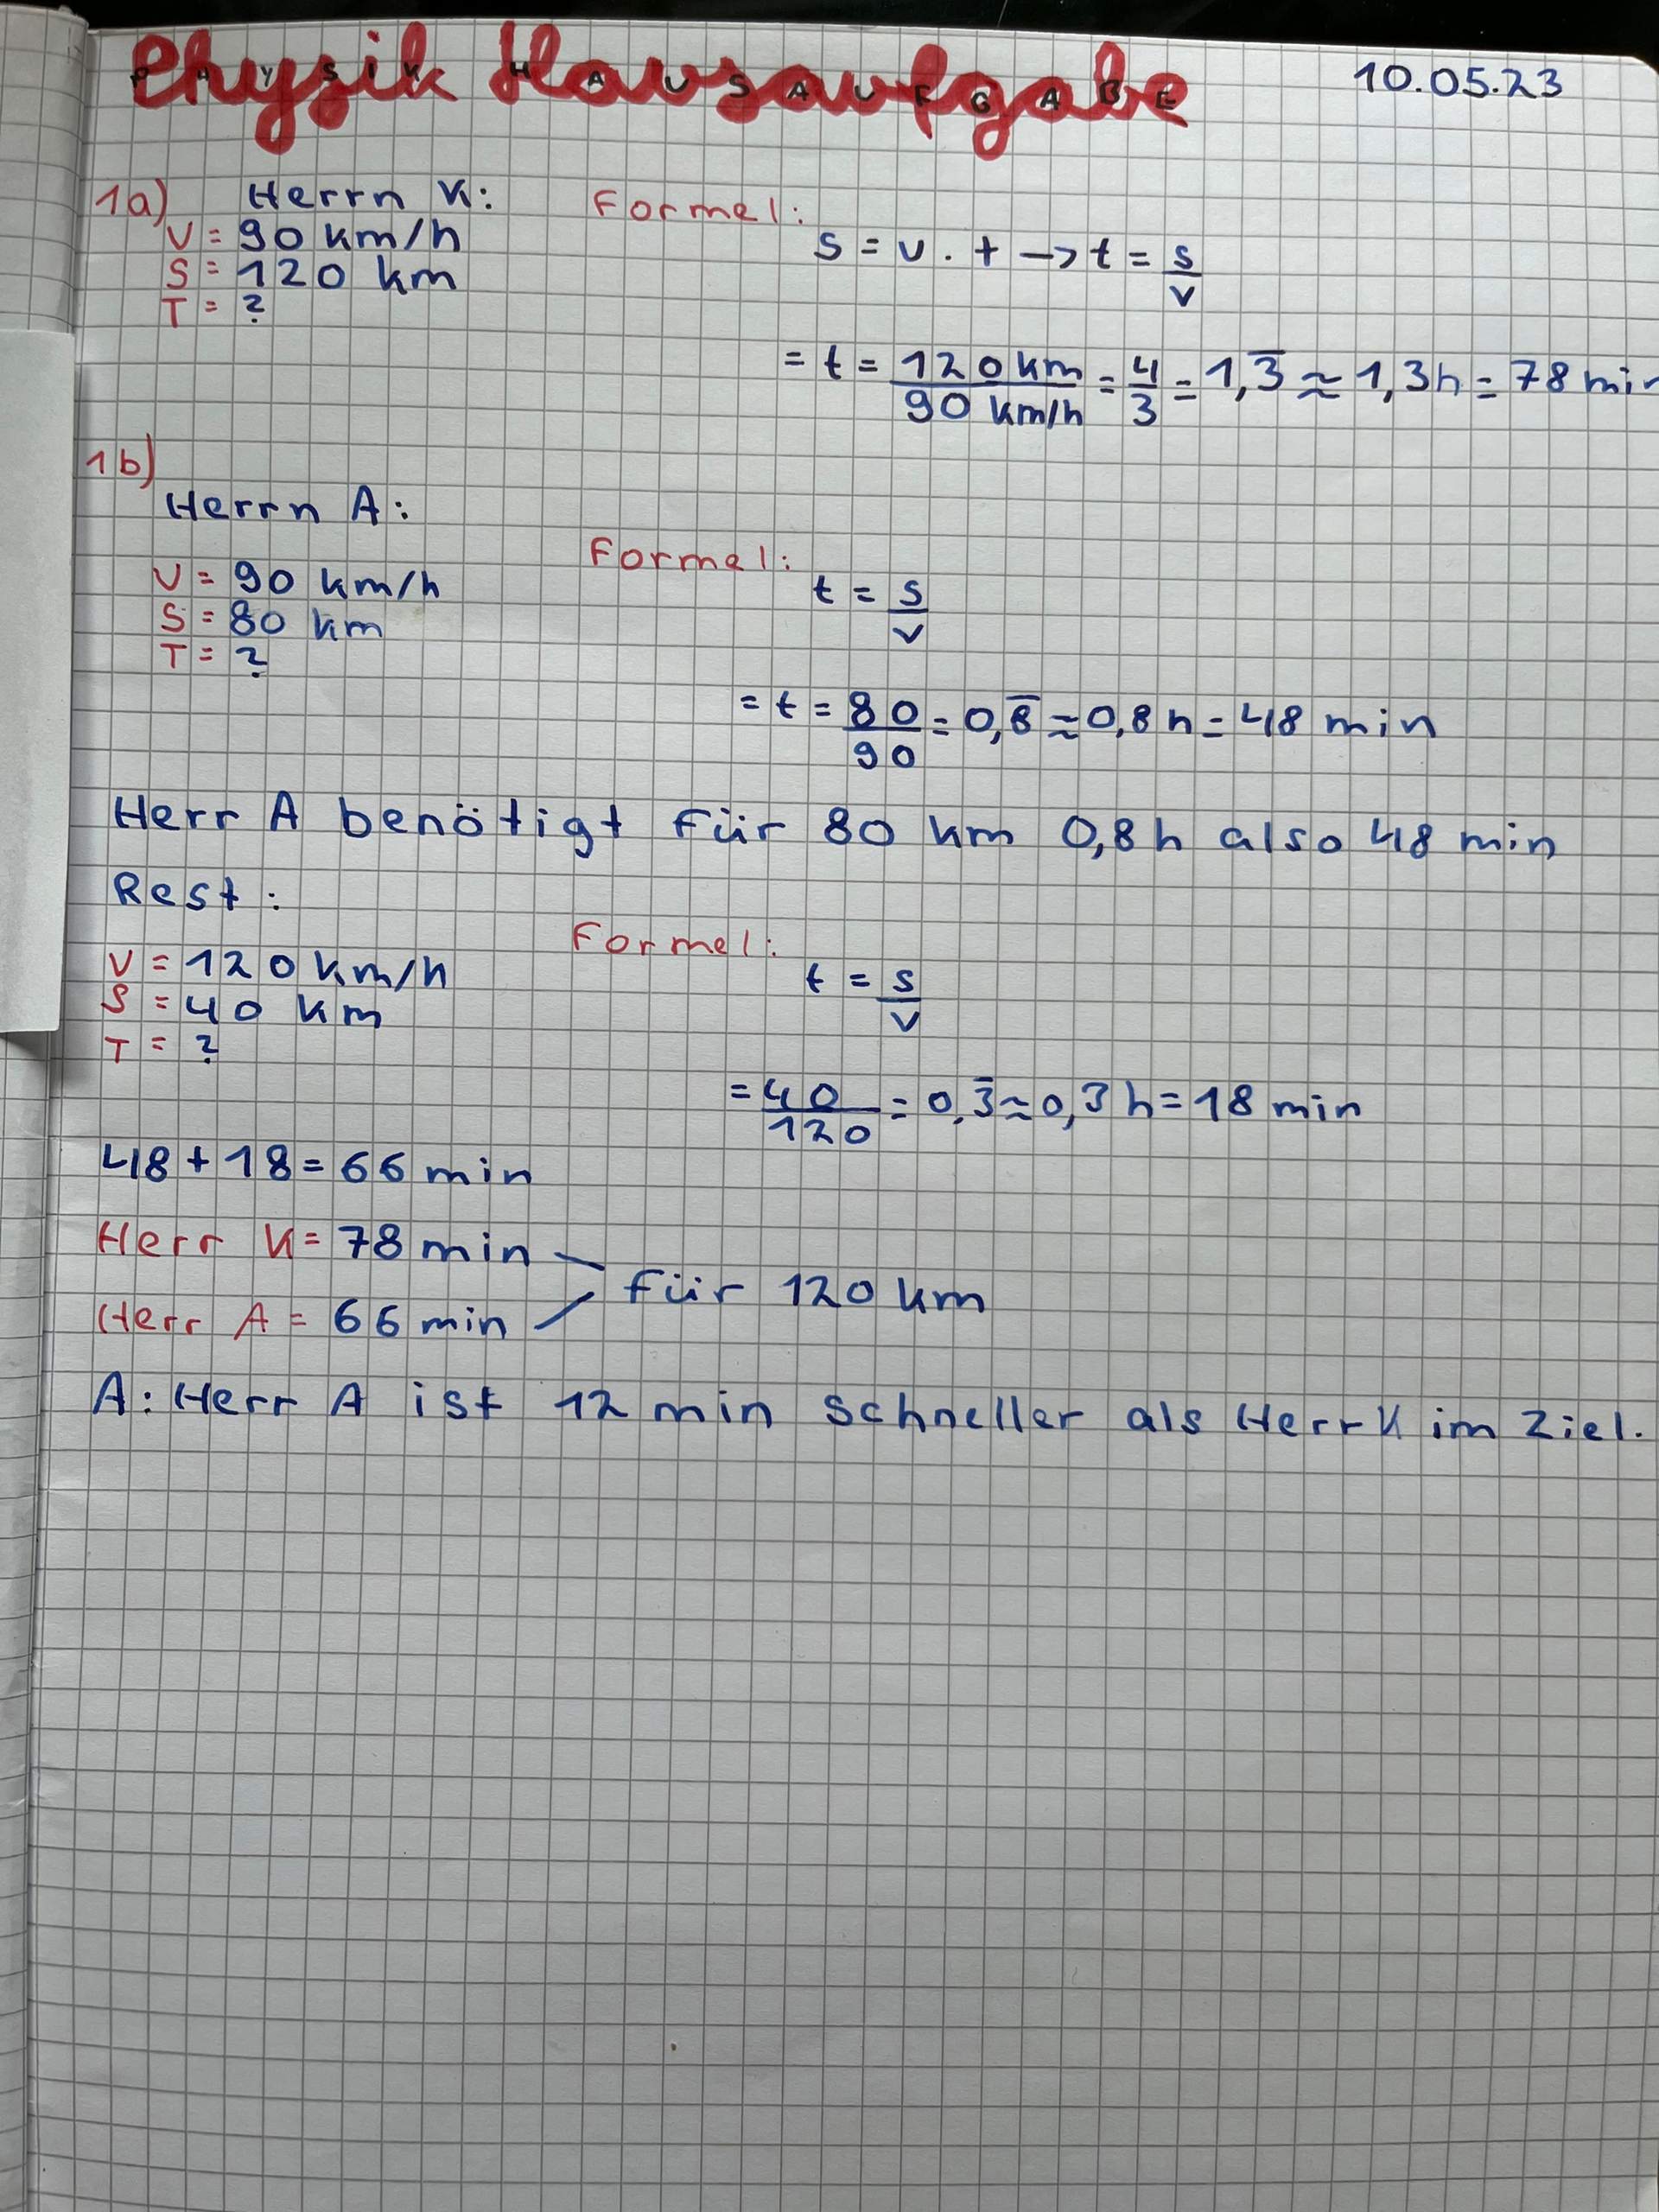 Physik Hausaufgabe 10.05.23
PHYSIK HAUSAUFGABE
1a) Herrn K: Formel:
V = 90 km/h
s = v . t -> t = s/v
S = 120 km
T = ?
= t = 120 km / 90 km/h = 4/3 = 1,3̅ ≈ 1,3h = 78 min
1b)
Herrn A:
Formel:
V = 90 km/h
t = s/v
S = 80 km
T = ?
= t = 80/90 = 0,8̅ ≈ 0,8 h = 48 min
Herr A benötigt für 80 km 0,8h also 48 min
Rest:
Formel:
V = 120 km/h
t = s/v
S = 40 km
T = ?
= 40/120 = 0,3̅ ≈ 0,3 h = 18 min
48 + 18 = 66 min
Herr K = 78 min
für 120 km
Herr A = 66 min
A: Herr A ist 12 min schneller als Herr K im Ziel.